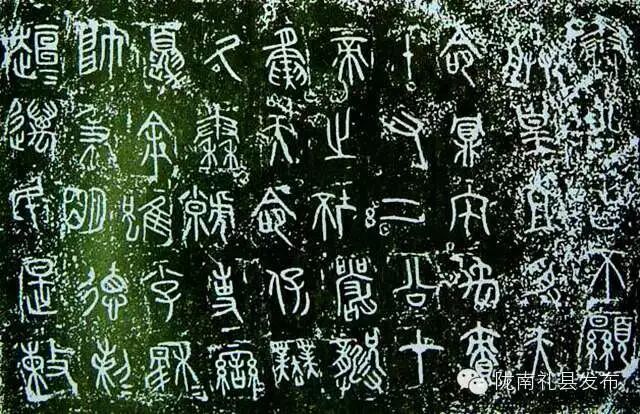 秦公曰不顯
朕皇且受天
命鼏宅禹責
十又二公才
帝之坏嚴龏
夤天命保業
氒秦虩事蠻
夏余雖小子穆
帥秉明德剌
趄邁民是敕
陇南礼县发布